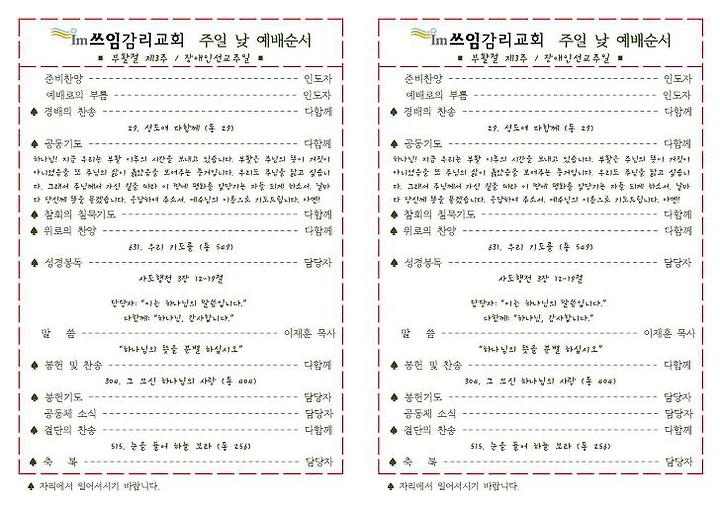 Im쓰임감리교회 주일 낮 예배순서
■ 부활절 제3주 / 장애인선교주일 ■
준비찬양 인도자
예배로의 부름 인도자
♠ 경배의 찬송 다함께
29. 성도여 다함께 (통 29)
♠ 공동기도 다함께
하나님! 지금 우리는 부활 이후의 시간을 보내고 있습니다. 부활은 주님의 뜻이 거짓이
아니었음을 또 주님의 삶이 옳았음을 보여주는 증거입니다. 우리도 주님을 닮고 싶습니
다. 그래서 주님께서 가신 길을 따라 이 땅에 평화를 일궈가는 자들 되게 하소서. 날마
다 당신께 뜻을 묻겠습니다. 응답하여 주소서. 예수님의 이름으로 기도드립니다. 아멘!
♠ 참회의 침묵기도 다함께
♠ 위로의 찬양 다함께
631. 우리 기도를 (통 549)
♠ 성경봉독 담당자
사도행전 3장 12-19절
담당자: “이는 하나님의 말씀입니다.”
다함께: “하나님, 감사합니다.”
말 씀 이재훈 목사
“하나님의 뜻을 분별 하십시오”
♠ 봉헌 및 찬송 다함께
304. 그 크신 하나님의 사랑 (통 404)
♠ 봉헌기도 담당자
공동체 소식 담당자
♠ 결단의 찬송 다함께
515. 눈을 들어 하늘 보라 (통 256)
♠ 축 복 담당자
♠ 자리에서 일어서시기 바랍니다.
Im쓰임감리교회 주일 낮 예배순서
■ 부활절 제3주 / 장애인선교주일 ■
준비찬양 인도자
예배로의 부름 인도자
♠ 경배의 찬송 다함께
29. 성도여 다함께 (통 29)
♠ 공동기도 다함께
하나님! 지금 우리는 부활 이후의 시간을 보내고 있습니다. 부활은 주님의 뜻이 거짓이
아니었음을 또 주님의 삶이 옳았음을 보여주는 증거입니다. 우리도 주님을 닮고 싶습니
다. 그래서 주님께서 가신 길을 따라 이 땅에 평화를 일궈가는 자들 되게 하소서. 날마
다 당신께 뜻을 묻겠습니다. 응답하여 주소서. 예수님의 이름으로 기도드립니다. 아멘!
♠ 참회의 침묵기도 다함께
♠ 위로의 찬양 다함께
631. 우리 기도를 (통 549)
♠ 성경봉독 담당자
사도행전 3장 12-19절
담당자: “이는 하나님의 말씀입니다.”
다함께: “하나님, 감사합니다.”
말 씀 이재훈 목사
“하나님의 뜻을 분별 하십시오”
♠ 봉헌 및 찬송 다함께
304. 그 크신 하나님의 사랑 (통 404)
♠ 봉헌기도 담당자
공동체 소식 담당자
♠ 결단의 찬송 다함께
515. 눈을 들어 하늘 보라 (통 256)
♠ 축 복 담당자
♠ 자리에서 일어서시기 바랍니다.